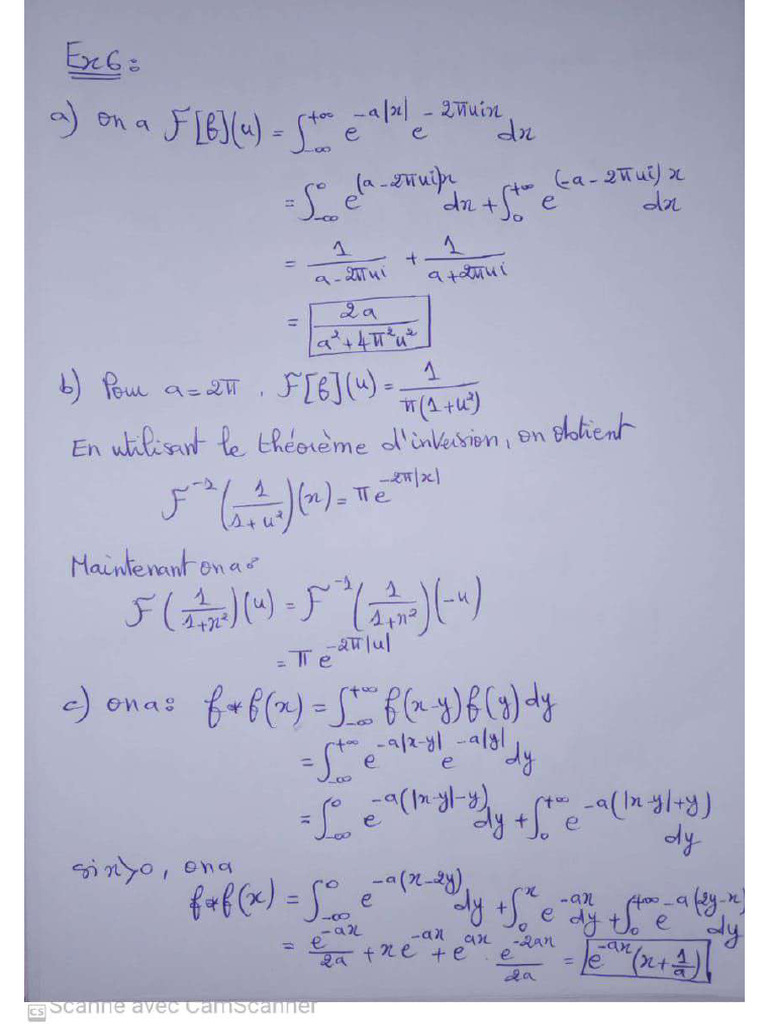 Ex6:
a) on a F[f](u) = ∫_{-∞}^{+∞} e^{-a|x|} e^{-2πuix} dx
= ∫_{-∞}^{0} e^{(a-2πui)x} dx + ∫_{0}^{+∞} e^{(-a-2πui)x} dx
= 1/(a-2πui) + 1/(a+2πui)
= 2a/(a²+4π²u²)
b) Pour a=2π, F[f](u) = 1/(π(1+u²))
En utilisant le théorème d'inversion, on obtient
F^{-1}(1/(1+u²))(x) = πe^{-2π|x|}
Maintenant on a:
F(1/(1+x²))(u) = F^{-1}(1/(1+x²))(-u)
= πe^{-2π|u|}
c) on a: f*f(x) = ∫_{-∞}^{+∞} f(x-y)f(y)dy
= ∫_{-∞}^{+∞} e^{-a|x-y|} e^{-a|y|} dy
= ∫_{-∞}^{0} e^{-a(|x-y|-y)} dy + ∫_{0}^{+∞} e^{-a(|x-y|+y)} dy
si x>0, on a
f*f(x) = ∫_{-∞}^{0} e^{-a(x-2y)} dy + ∫_{0}^{x} e^{-ax} dy + ∫_{0}^{+∞} e^{-a(2y-x)} dy
= e^{-ax}/2a + xe^{-ax} + e^{ax} · e^{-2ax}/2a = e^{-ax}(x+1/a)
CS Scanné avec CamScanner